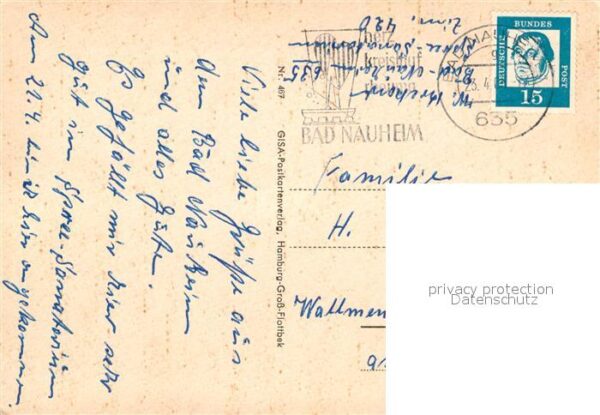 Viele liebe Grüße aus
dem Bad Nauheim
und alles Gute.
Es gefällt mir hier sehr
gut im Spree-Sanatorium
Am 21.4. bin ich hier angekommen.
Nr. 467 GISA-Postkartenverlag, Hamburg-Groß-Flottbek
herz
kreislauf
BAD NAUHEIM
Sanatorium
Zim. 420
Bad-Nauheim
635
BAD NAUHEIM
23.4.
635
DEUTSCHE BUNDESPOST
15
Familie
H.
Wallmen
privacy protection
Datenschutz